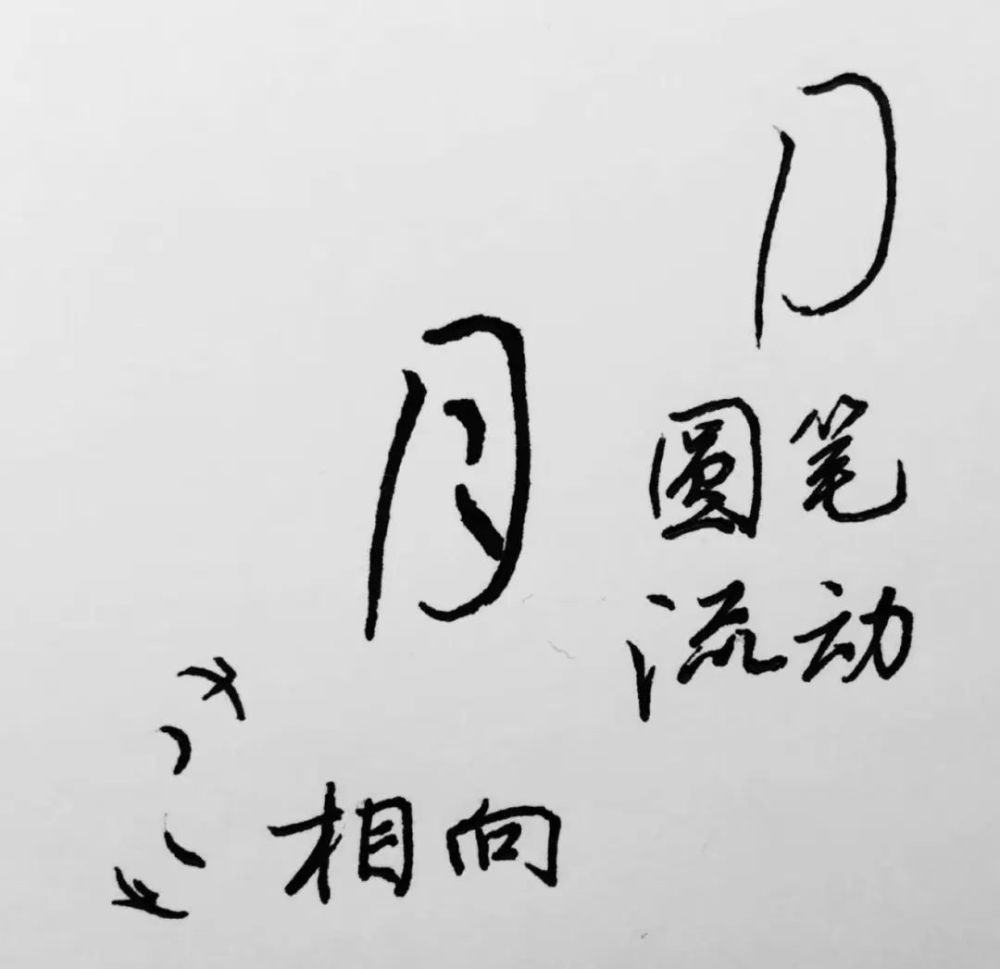 月
圆笔
流动
相向